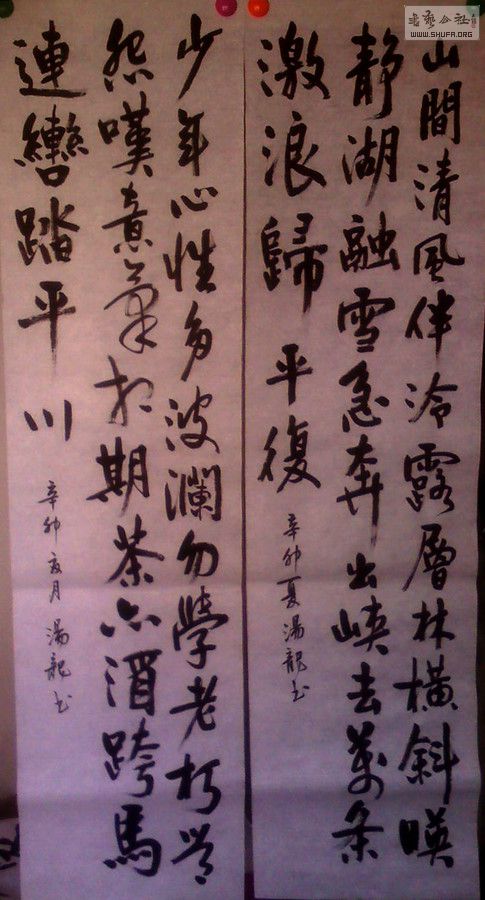 書藝公社
WWW.SHUFA.ORG
山間清風伴冷露層林橫斜暎
静湖融雪急奔出峽去萬条
激浪歸平復
辛卯夏湯龍书
少年心性多波瀾勿學老朽
怨嘆意氣相期茶亦酒跨馬
連轡踏平川
辛卯夏月湯龍书